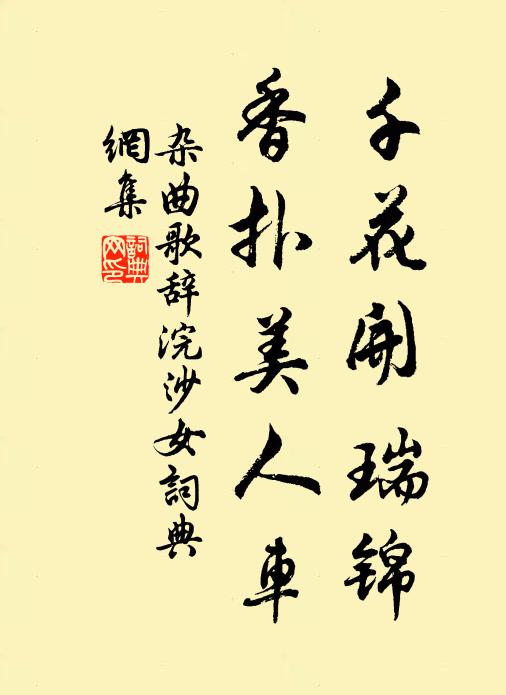 千花开瑞锦
香扑美人車
杂曲歌辞浣沙女詞典
網集
詞典
网印